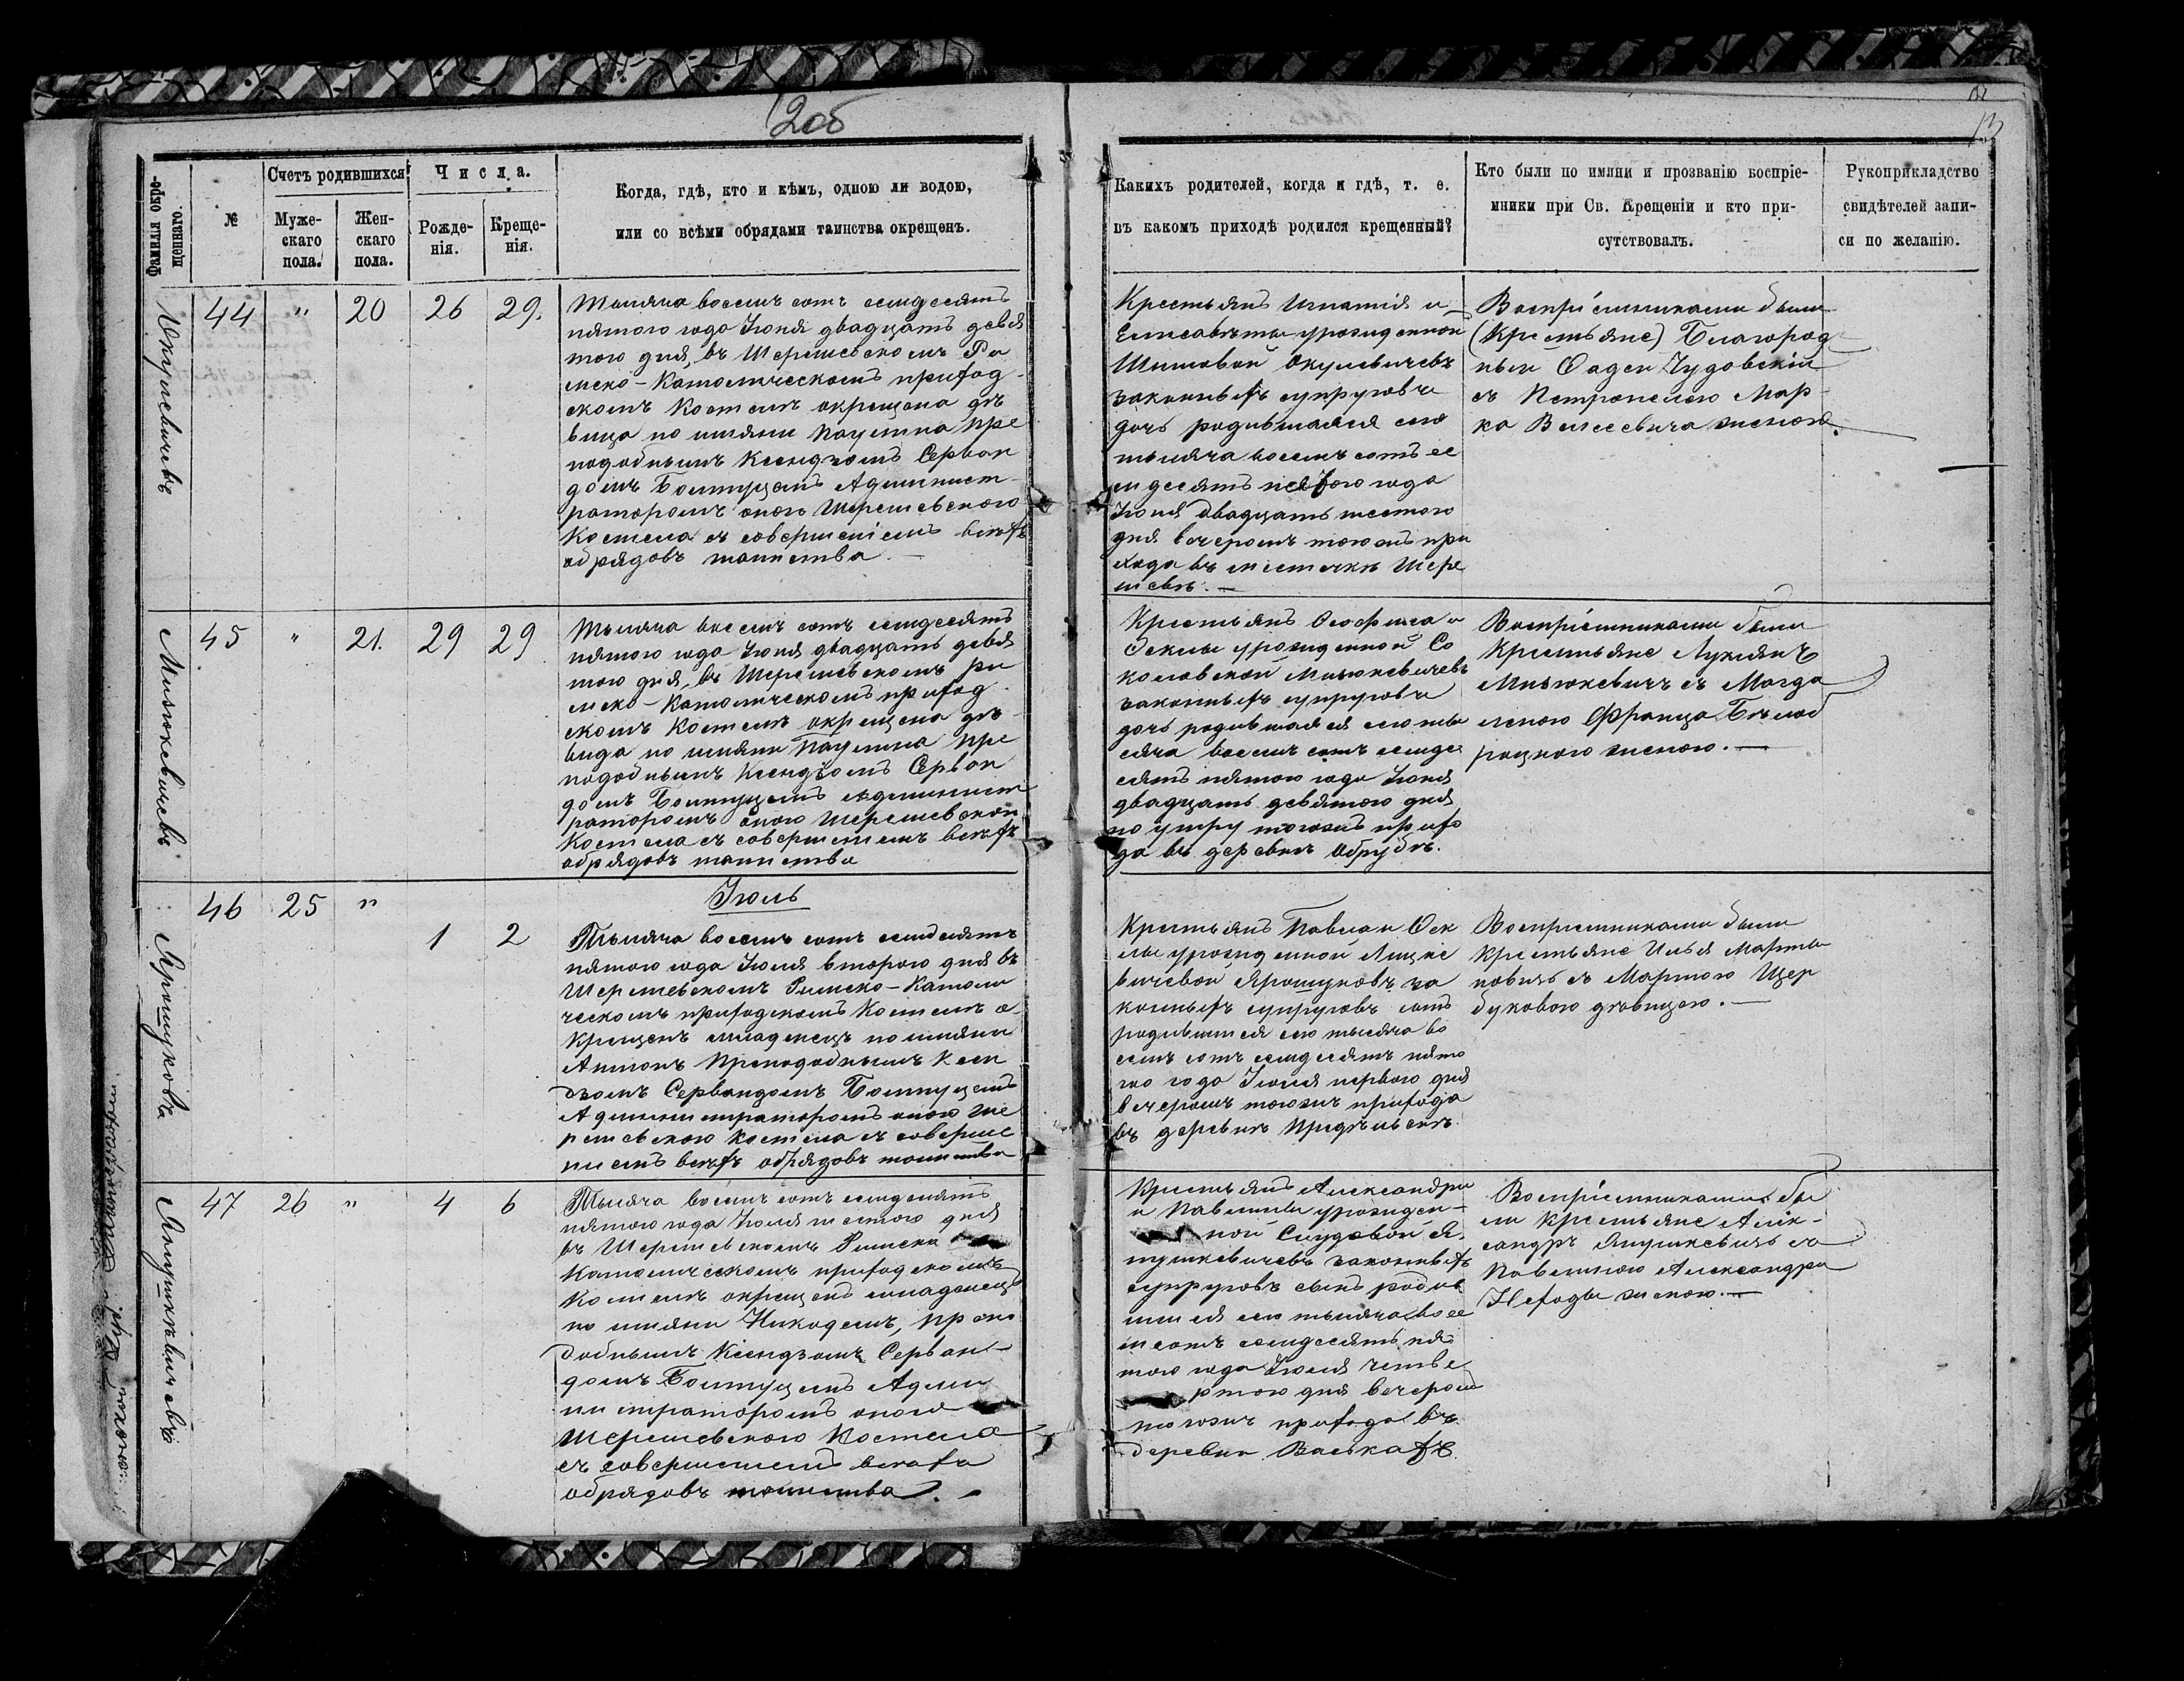 12об
13
Фамилія окре-
щеннаго.
№
Счетъ родившихся
Муже-
скаго
пола.
Жен-
скаго
пола.
Числа.
Рожде-
нія.
Креще-
нія.
Когда, гдѣ, кто и кѣмъ, одною ли водою,
или со всѣми обрядами таинства окрещенъ.
Какихъ родителей, когда и гдѣ, т. е.
въ какомъ приходѣ родился крещенный?
Кто были по имяни и прозванію воспріе-
мники при Св. Крещеніи и кто при-
сутствовалъ.
Рукоприкладство
свидѣтелей запи-
си по желанію.
44 " 20 26 29.
Тысяча восемъ сотъ семдесятъ
пятого года Іюня двадцать девя
того дня, въ Шерешевскомъ Ри
мско-Католическомъ приход-
скомъ Костелѣ окрещена дѣ
вица по имяни Паулина пре
подобнымъ Ксендзомъ Серван
домъ Болтуцемъ Админист-
раторомъ оного Шерешевского
Костела съ совершеніемъ всѣхъ
обрядовъ таинства.
Крестьянъ Игнатія и
Елисаветы урожденной
Шиловой Окулевичевъ
законныхъ супруговъ
дочь родившаяся сего
тысяча восемъ сотъ се
мдесятъ пятого года
Іюня двадцать шестого
дня вечеромъ тогожъ при
хода въ местечкѣ Шере
шевѣ.
Воспріемниками были
(Крестьяне) Благород
ныи Фадеи Чудовскій
съ Петронелею Мар-
ка женою.
45 " 21. 29 29
Милюкевичевъ
Тысяча восемъ сотъ семдесятъ
пятого года Іюня двадцать девя
того дня, въ Шерешевскомъ Ри
мско-Католическомъ приход
скомъ Костелѣ окрещена дѣ-
вица по имяни Паулина пре
подобнымъ Ксендзомъ Серван
домъ Болтуцемъ Админист
раторомъ оного Шерешевскаго
Костела съ совершеніемъ всѣхъ
обрядовъ таинства
Крестьянъ Феофила и
Феклы урожденной Со
коловской Милюкевичевъ
законныхъ супруговъ
дочь родившаяся сего ты
сяча восемъ сотъ семде
сятъ пятого года Іюня
двадцать девятого дня
по утру тогожъ прихо
да въ деревнѣ Обрубѣ.
Воспріемниками были
Крестьяне Лукіянъ
Милюкевичъ съ Магда
леною Франца
женою.
Іюль
46 25 " 1 2
Ярошуковъ
Тысяча восемъ сотъ семдесятъ
пятого года Іюля второго дня въ
Шерешевскомъ Римско-Католи
ческомъ приходскомъ Костелѣ о-
крещенъ младенецъ по имяни
Антонъ Преподобнымъ Ксен
дзомъ Сервандомъ Болтуцемъ
Администраторомъ оного Ше
решевского Костела съ соверше
ніемъ всѣхъ обрядовъ таинства
Крестьянъ Павла и Фек
лы урожденной Лицке
вичевой Ярошуковъ за
конныхъ супруговъ сынъ
родившійся сего тысяча во
семъ сотъ семдесятъ пято
го года Іюля первого дня
вечеромъ тогожъ прихода
въ деревнѣ
Воспріемниками были
Крестьяне Илья Марты
новичъ съ Мартою Щер
буковою дѣвицею.
47 26 " 4 6
Янушкѣвичевъ
Тысяча восемъ сотъ семдесятъ
пятого года Іюля шестого дня
въ Шерешевскомъ Римско
Католическомъ приходскомъ
Костелѣ окрещенъ младенецъ
по имяни Никодемъ, препо
добнымъ Ксендзомъ Серван-
домъ Болтуцемъ Адми
нистраторомъ оного
Шерешевского Костела
съ совершеніемъ всѣхъ
обрядовъ таинства.
Крестьянъ Александра
и Павлины урожден-
ной Я
нушкевичевъ законныхъ
супруговъ сынъ родив
шійся сего тысяча восе
м сотъ семдесятъ пя
того года Іюля четве
ртого дня вечеромъ
тогожъ прихода въ
деревни Васькахъ
Воспріемниками бы
ли Крестьяне Алек-
сандръ Янушкевичъ съ
Павлиною Александра
женою.